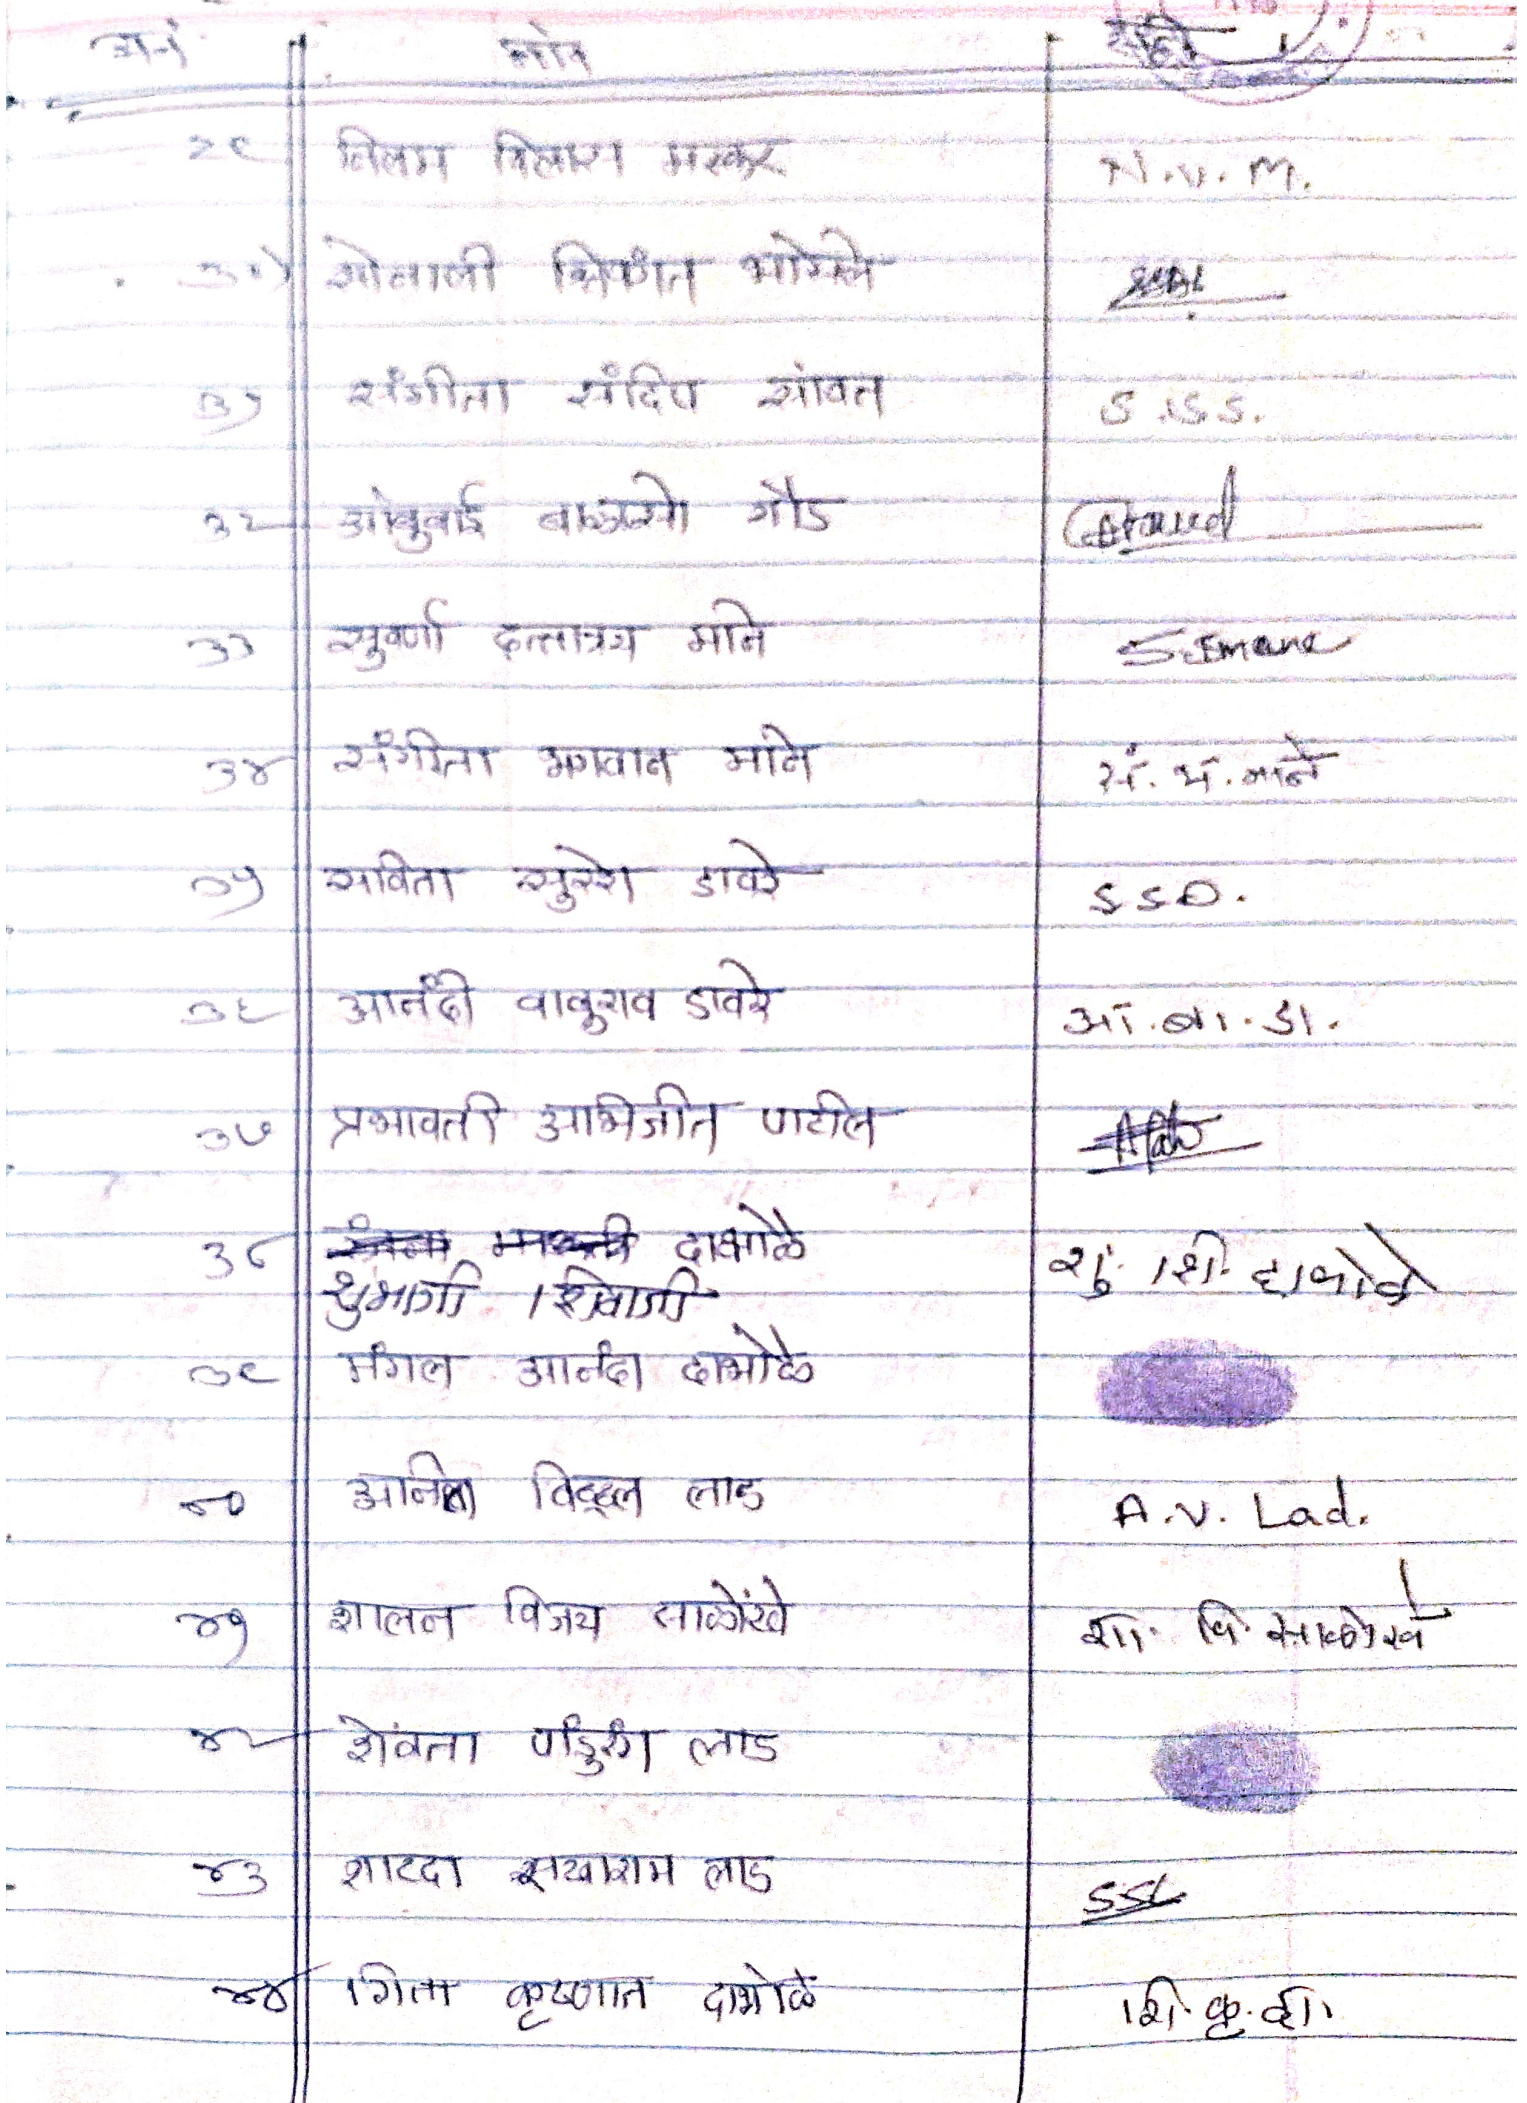 अ.नं. नांव सही
२९ निलम विलास मस्कर N.V.M.
३० सोनाली भोसले
३१ संगीता संदिप सांवत S.S.S.
३२ गौड
३३ सुवर्णा दत्तात्रय माने S.D.mane
३४ संगीता भगवान माने सं.भ.माने
३५ सविता सुरेश डावरे S S D.
३६ आनंदी बाबुराव डावरे आं.बा.डा.
३७ प्रभावती अभिजीत पाटील
३८ दाभोळे शु. शि. दाभोळे
शुभांगी शिवाजी
३९ मंगल आनंदा दाभोळे
४० अनिता विठ्ठल लाड A.V. Lad.
४१ शालन विजय साळोंखे शा. वि. साळोखे
४२ शेवंता पांडुरंग लाड
४३ शारदा सखाराम लाड SSL
४४ गिता कृष्णात दाभोळे गि.कृ.दा.